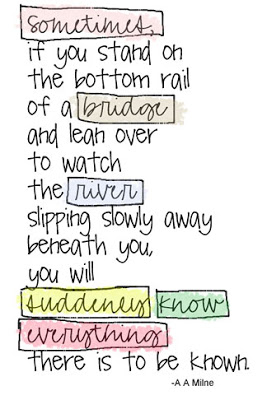 sometimes,
if you stand on
the bottom rail
of a bridge
and lean over
to watch
the river
slipping slowly away
beneath you,
you will
suddenly know
everything
there is to be known.
-A A Milne